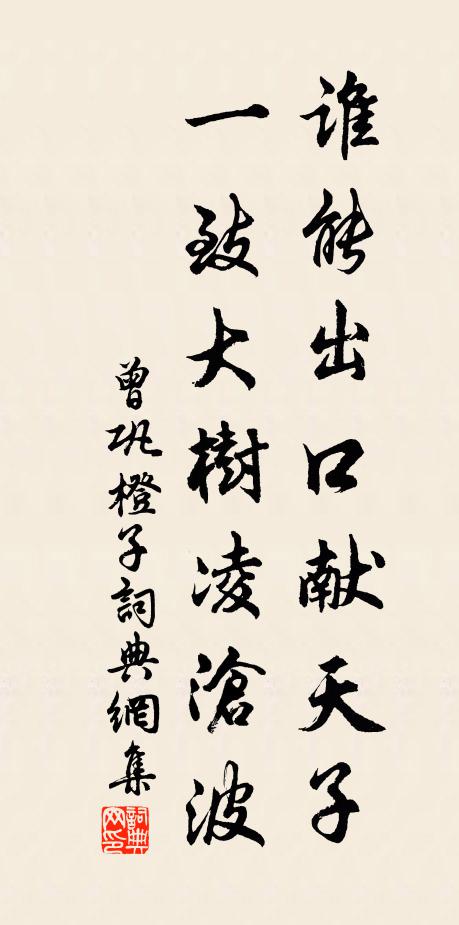 誰能出口献天子
一致大樹凌滄波
曾巩橙子詞典網集
詞典
网印